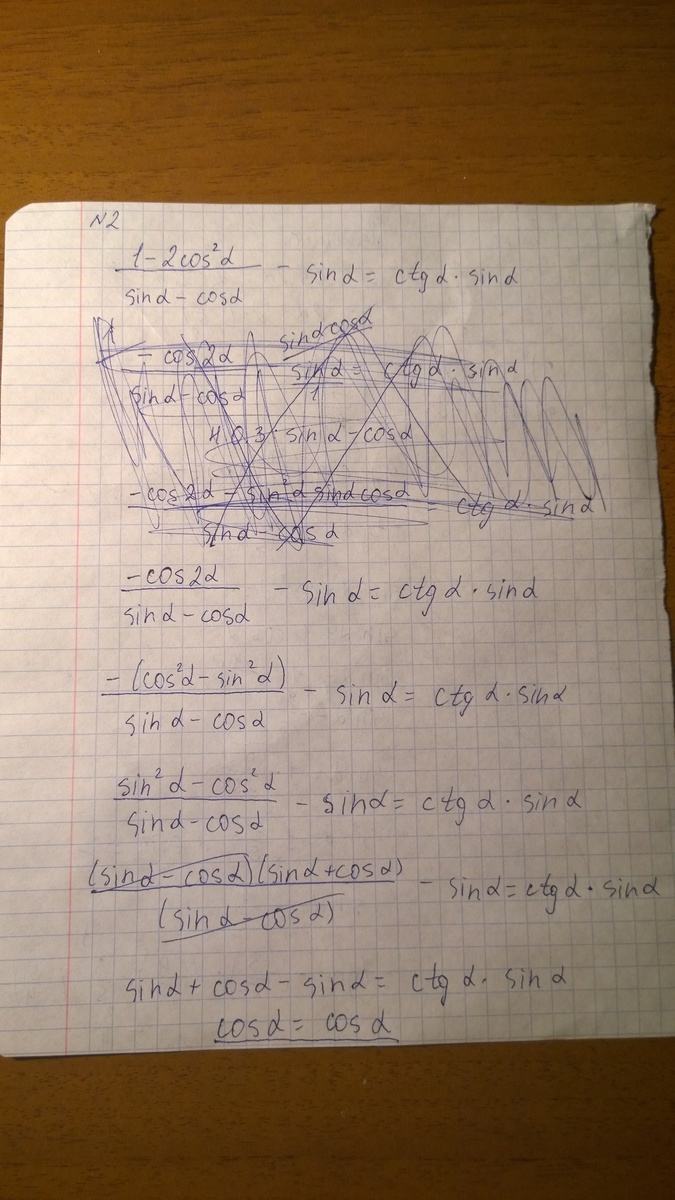 N2
1-2cos²α / sinα - cosα - sinα = ctgα · sinα
-cos2α / sinα - cosα - sinα / 1 = ctgα · sinα
sinαcosα
Н.О.З: sinα - cosα
-cos2α - sin²α sinαcosα / sinα - cosα = ctgα · sinα
-cos2α / sinα - cosα - sinα = ctgα · sinα
-(cos²α - sin²α) / sinα - cosα - sinα = ctgα · sinα
sin²α - cos²α / sinα - cosα - sinα = ctgα · sinα
(sinα - cosα)(sinα + cosα) / (sinα - cosα) - sinα = ctgα · sinα
sinα + cosα - sinα = ctgα · sinα
cosα = cosα